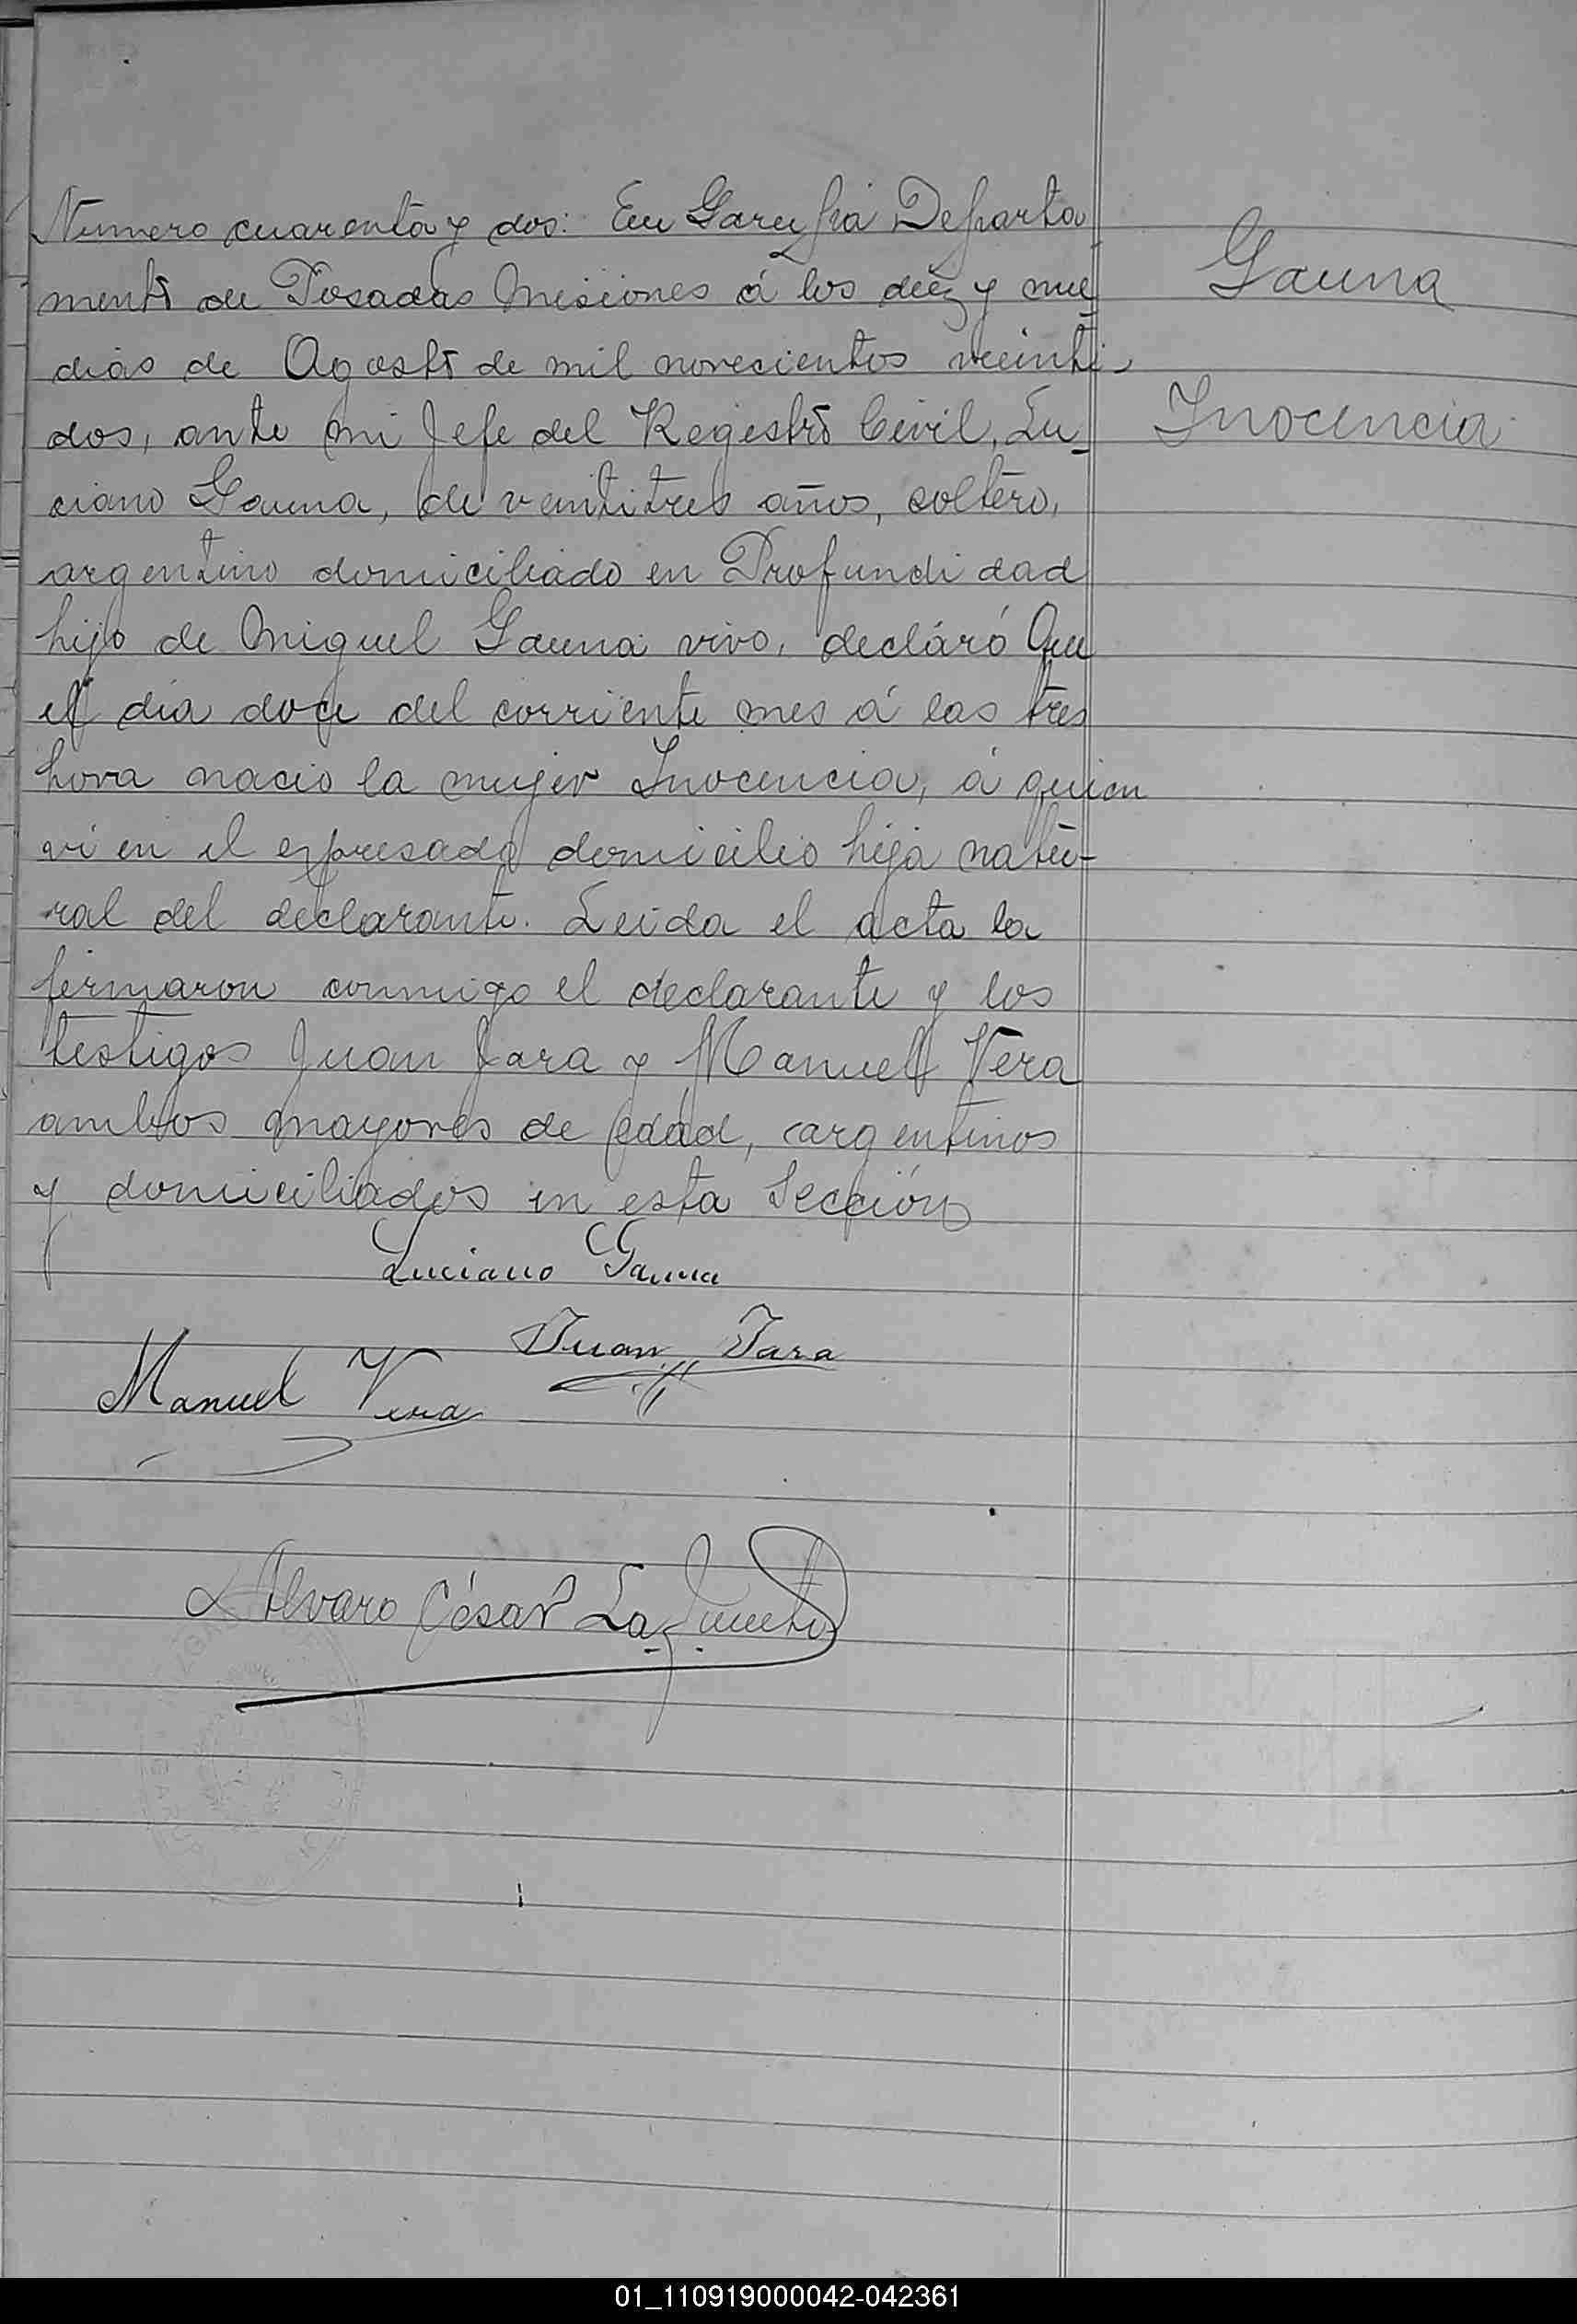 Numero cuarenta y dos: En Garupá Departa
mento de Posadas Misiones á los diez y nue
dias de Agosto de mil novecientos veinti
dos, ante mi Jefe del Registro Civil, Lu
ciano Gauna, de veintitres años, soltero,
argentino domiciliado en Profundidad
hijo de Miguel Gauna vivo, declaró Que
el dia doce del corriente mes á las tres
hora nacio la mujer Inocencia, á quien
vi en el expresado domicilio hija natu-
ral del declarante. Leida el acta la
firmaron conmigo el declarante y los
testigos Juan Jara y Manuel Vera
ambos mayores de edad, argentinos
y domiciliados en esta Sección
Gauna
Inocencia
Luciano Gauna
Juan Jara
Manuel Vera
Alvaro César
01_110919000042-042361